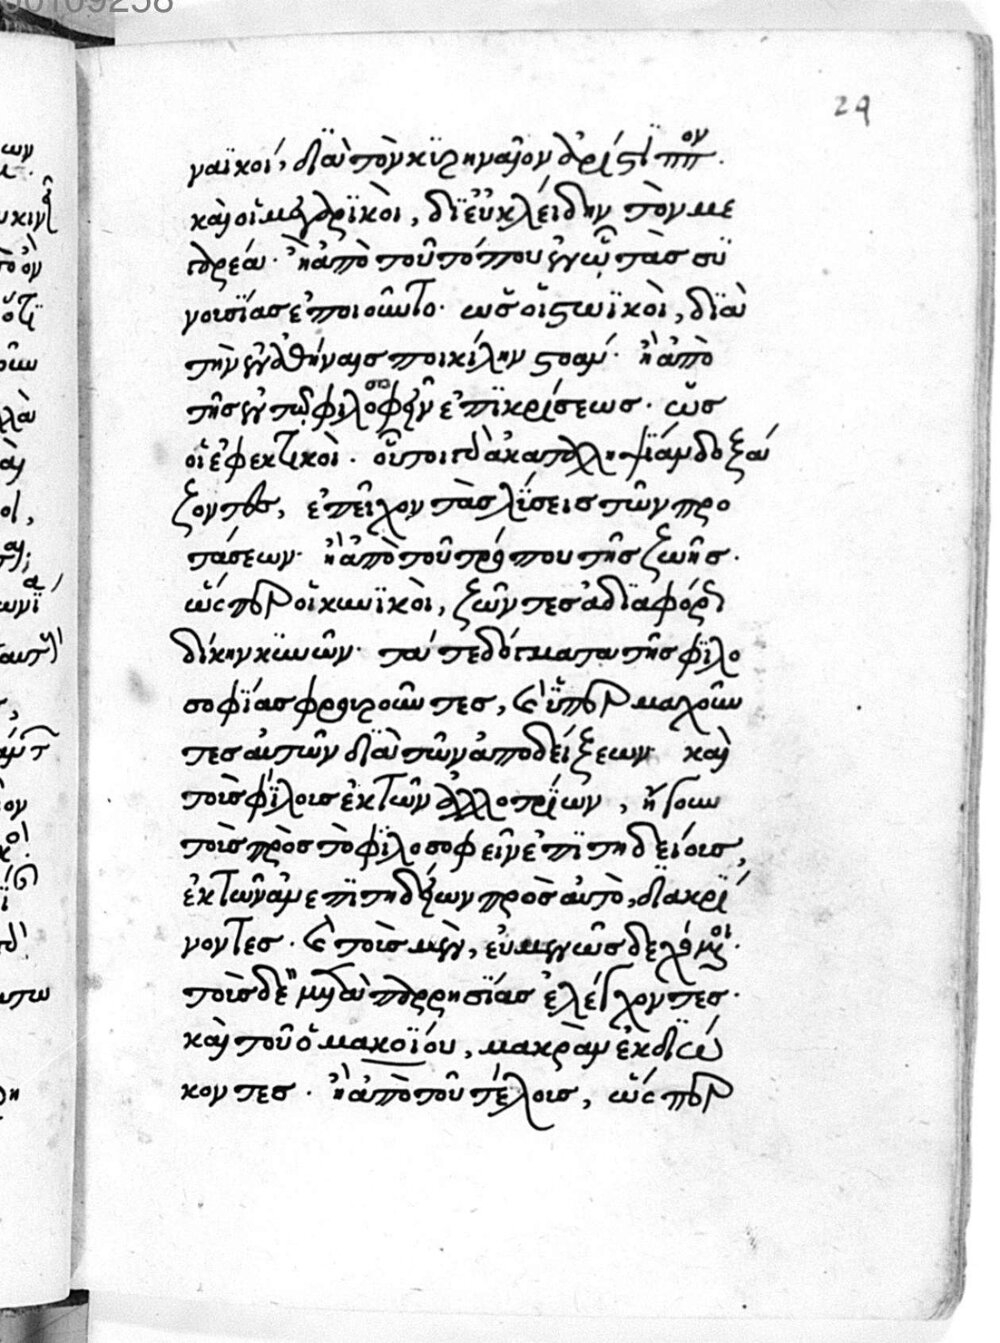 29
ναϊκοί, διὰ τὸν κυρηναῖον ἀρίστιππον.
καὶ οἱ μεγαρϊκοὶ, δϊ εὐκλείδην τὸν με
γαρέα. ἢ ἀπὸ τοῦ τόπου ἐν ᾧ τὰς συ
νουσίας ἐποιοῦντο. ὡς οἱ στωϊκοὶ, διὰ
τὴν ἐν ἀθήναις ποικίλην στοάν. ἢ ἀπὸ
τῆς ἐν τῷ φιλοσοφεῖν ἐπϊκρίσεως. ὡς
οἱ ἐφεκτικοὶ. οὗτοι γὰρ ἀκαταληψίαν δοξά
ζοντες, ἐπεῖχον τὰς λύσεις τῶν προ
τάσεων. ἢ ἀπὸ τοῦ τρόπου τῆς ζωῆς.
ὥσπερ οἱ κυνϊκοὶ, ζῶντες ἀδιαφόρως
δίκην κυνῶν. τά τε δόγματα τῆς φϊλο
σοφϊας φρουροῦντες, καὶ ὑπερμαχοῦν
τες αὐτῶν διὰ τῶν ἀποδείξεων. καὶ
τοὺς φίλους ἐκ τῶν ἀλλοτρίων, ἤγουν
τοὺς πρὸς τὸ φϊλοσοφεῖν ἐπϊτηδείους,
ἐκ τῶν ἀνεπϊτηδείων πρὸς αὐτὸ, διακρί
νοντες. καὶ τοὺς μὲν, εὐμενῶς δεχόμενοι.
τοὺς δὲ μετὰ παρρησϊας ἐλέγχοντες.
καὶ τοῦ ὁμακοΐου, μακρὰν ἐκδιώ
κοντες. ἢ ἀπὸ τοῦ τέλους, ὥσπερ